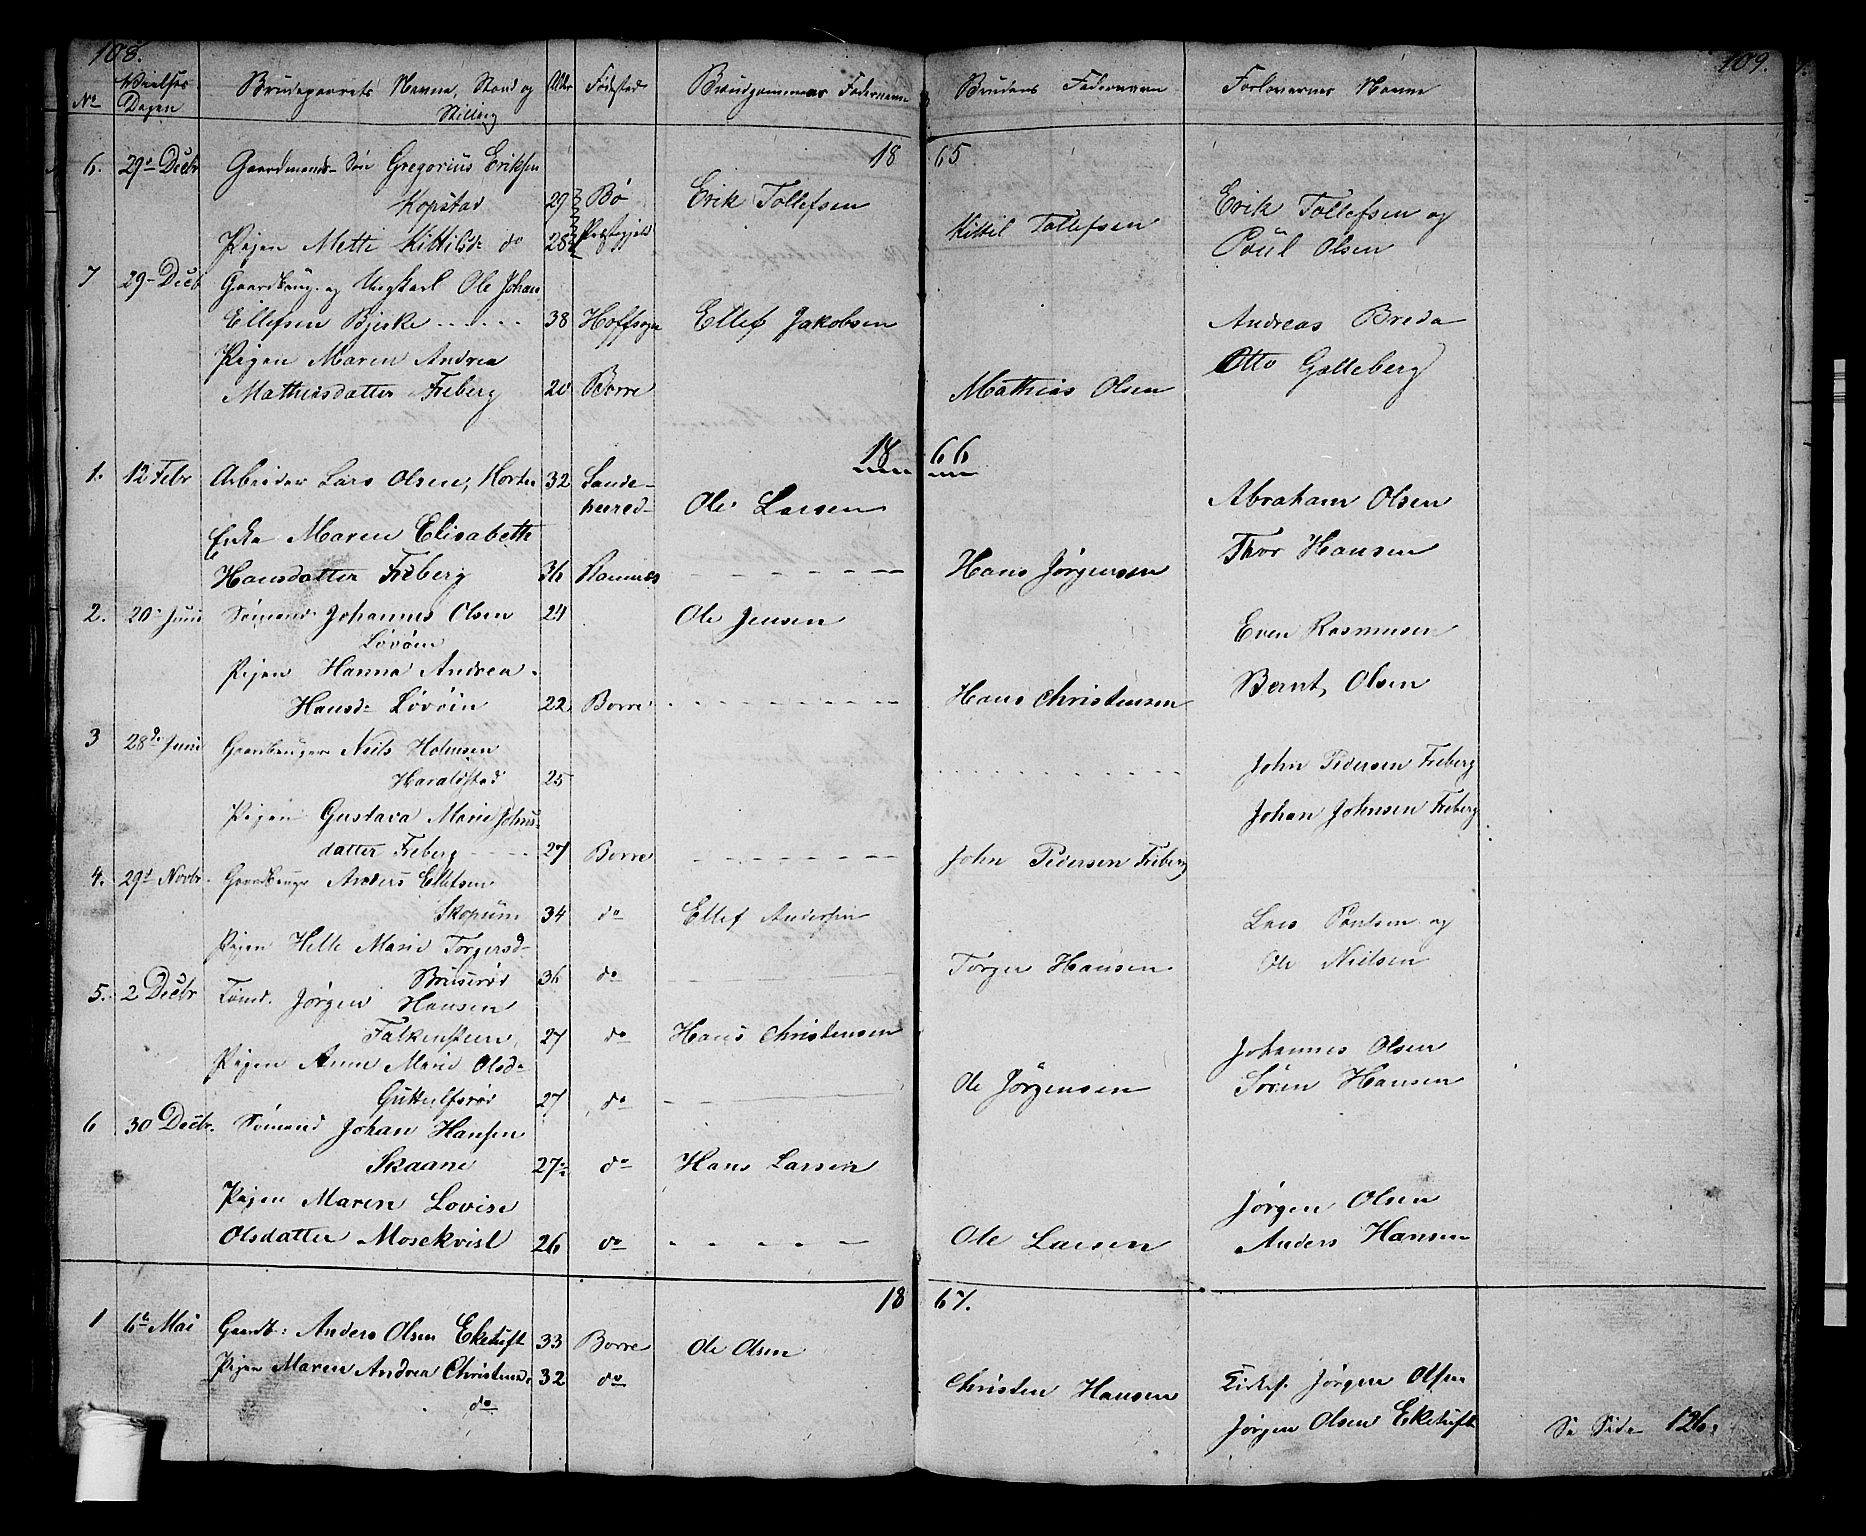 108.
109.
No
Vielses Dagen
Brudeparrets Navne, Stand og Stilling
Alder
Fødested
Brudgommens Fadernavn
Brudens Fadernavn
Forlovernes Navne
18 65
6. 29e Decbr Gaardmands Søn Gregorius Eriksen
Kopstad 29 Bø Erik Tollefsen
Erik Tollefsen og
Pigen Mette Kittilsd. do 28 Præstegjeld Kittil Tollefsen
Poul Olsen
7 29 Decb Gaardbrug. og Ungkarl Ole Johan
Ellefsen Bjerke 38 Hoffsogn Ellef Jakobsen Andreas Breda
Pigen Maren Andrea
Otto Galleberg
Mathiasdatter Freberg 20 Borre Mathias Olsen
18 66
1. 12 Febr Arbeider Lars Olsen, Horten 32 Sande-
herred Ole Larsen Abraham Olsen
Enke Maren Elisabeth
Thor Hansen
Hansdatter Freberg 36 Ramnæs Hans Jørgensen
2. 20 Juni Sømand Johannes Olsen 24 Ole Jensen Even Rasmusen
Løvøin
Pigen Hanna Andrea
Bernt Olsen
Hansd. Løvøin 22 Borre Hans Christensen
3 28de Juni Gaardbruger Niels Holmsen
Haraldstad 25 John Pedersen Freberg
Pigen Gustava Marie Johns-
Johan Johnsen Freberg
datter Freberg 27 Borre John Pedersen Freberg
4. 29d Novbr. Gaardbruger Anders Ellefsen
Skopum 34 do Ellef Andersen Lars Paulsen og
Pigen Helle Marie Torgersd.
Ole Nielsen
Bruserød 36 do Torger Hansen
5. 2 Decbr Tømd. Jørgen Hansen
Falkensteen 27 do Hans Christensen
Johannes Olsen
Pigen Anne Marie Olsd.
Søren Hansen
Gultulfsrød 27 do Ole Jørgensen
6 30 Decbr. Sømand Johan Hansen
Skaane 27 do Hans Larsen
Pigen Maren Lovise
Jørgen Olsen
Olsdatter Mosekvist 26 do Ole Larsen Anders Hansen
18 67.
1 6te Mai Gaardb: Anders Olsen Eketuft 33 Borre Ole Olsen
Pigen Maren Andrea Christensd. 32 do Christen Hansen Kirkes. Jørgen Olsen
do
Jørgen Olsen Eketuft
Se Side 126.